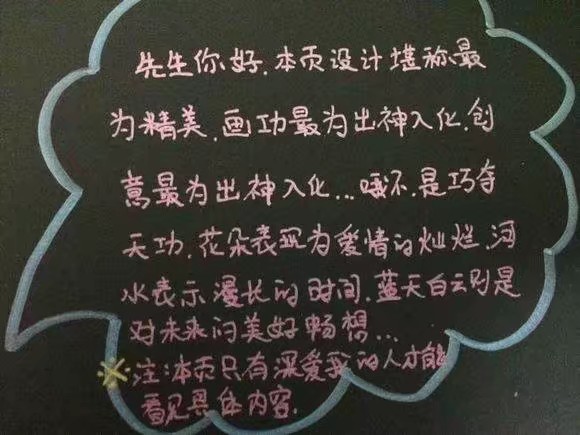 先生你好.本页设计堪称最
为精美.画功最为出神入化.创
意最为出神入化...哦不.是巧夺
天功.花朵表现为爱情的灿烂.河
水表示漫长的时间.蓝天白云则是
对未来的美好畅想...
※注:本页只有深爱我的人才能
看见具体内容.